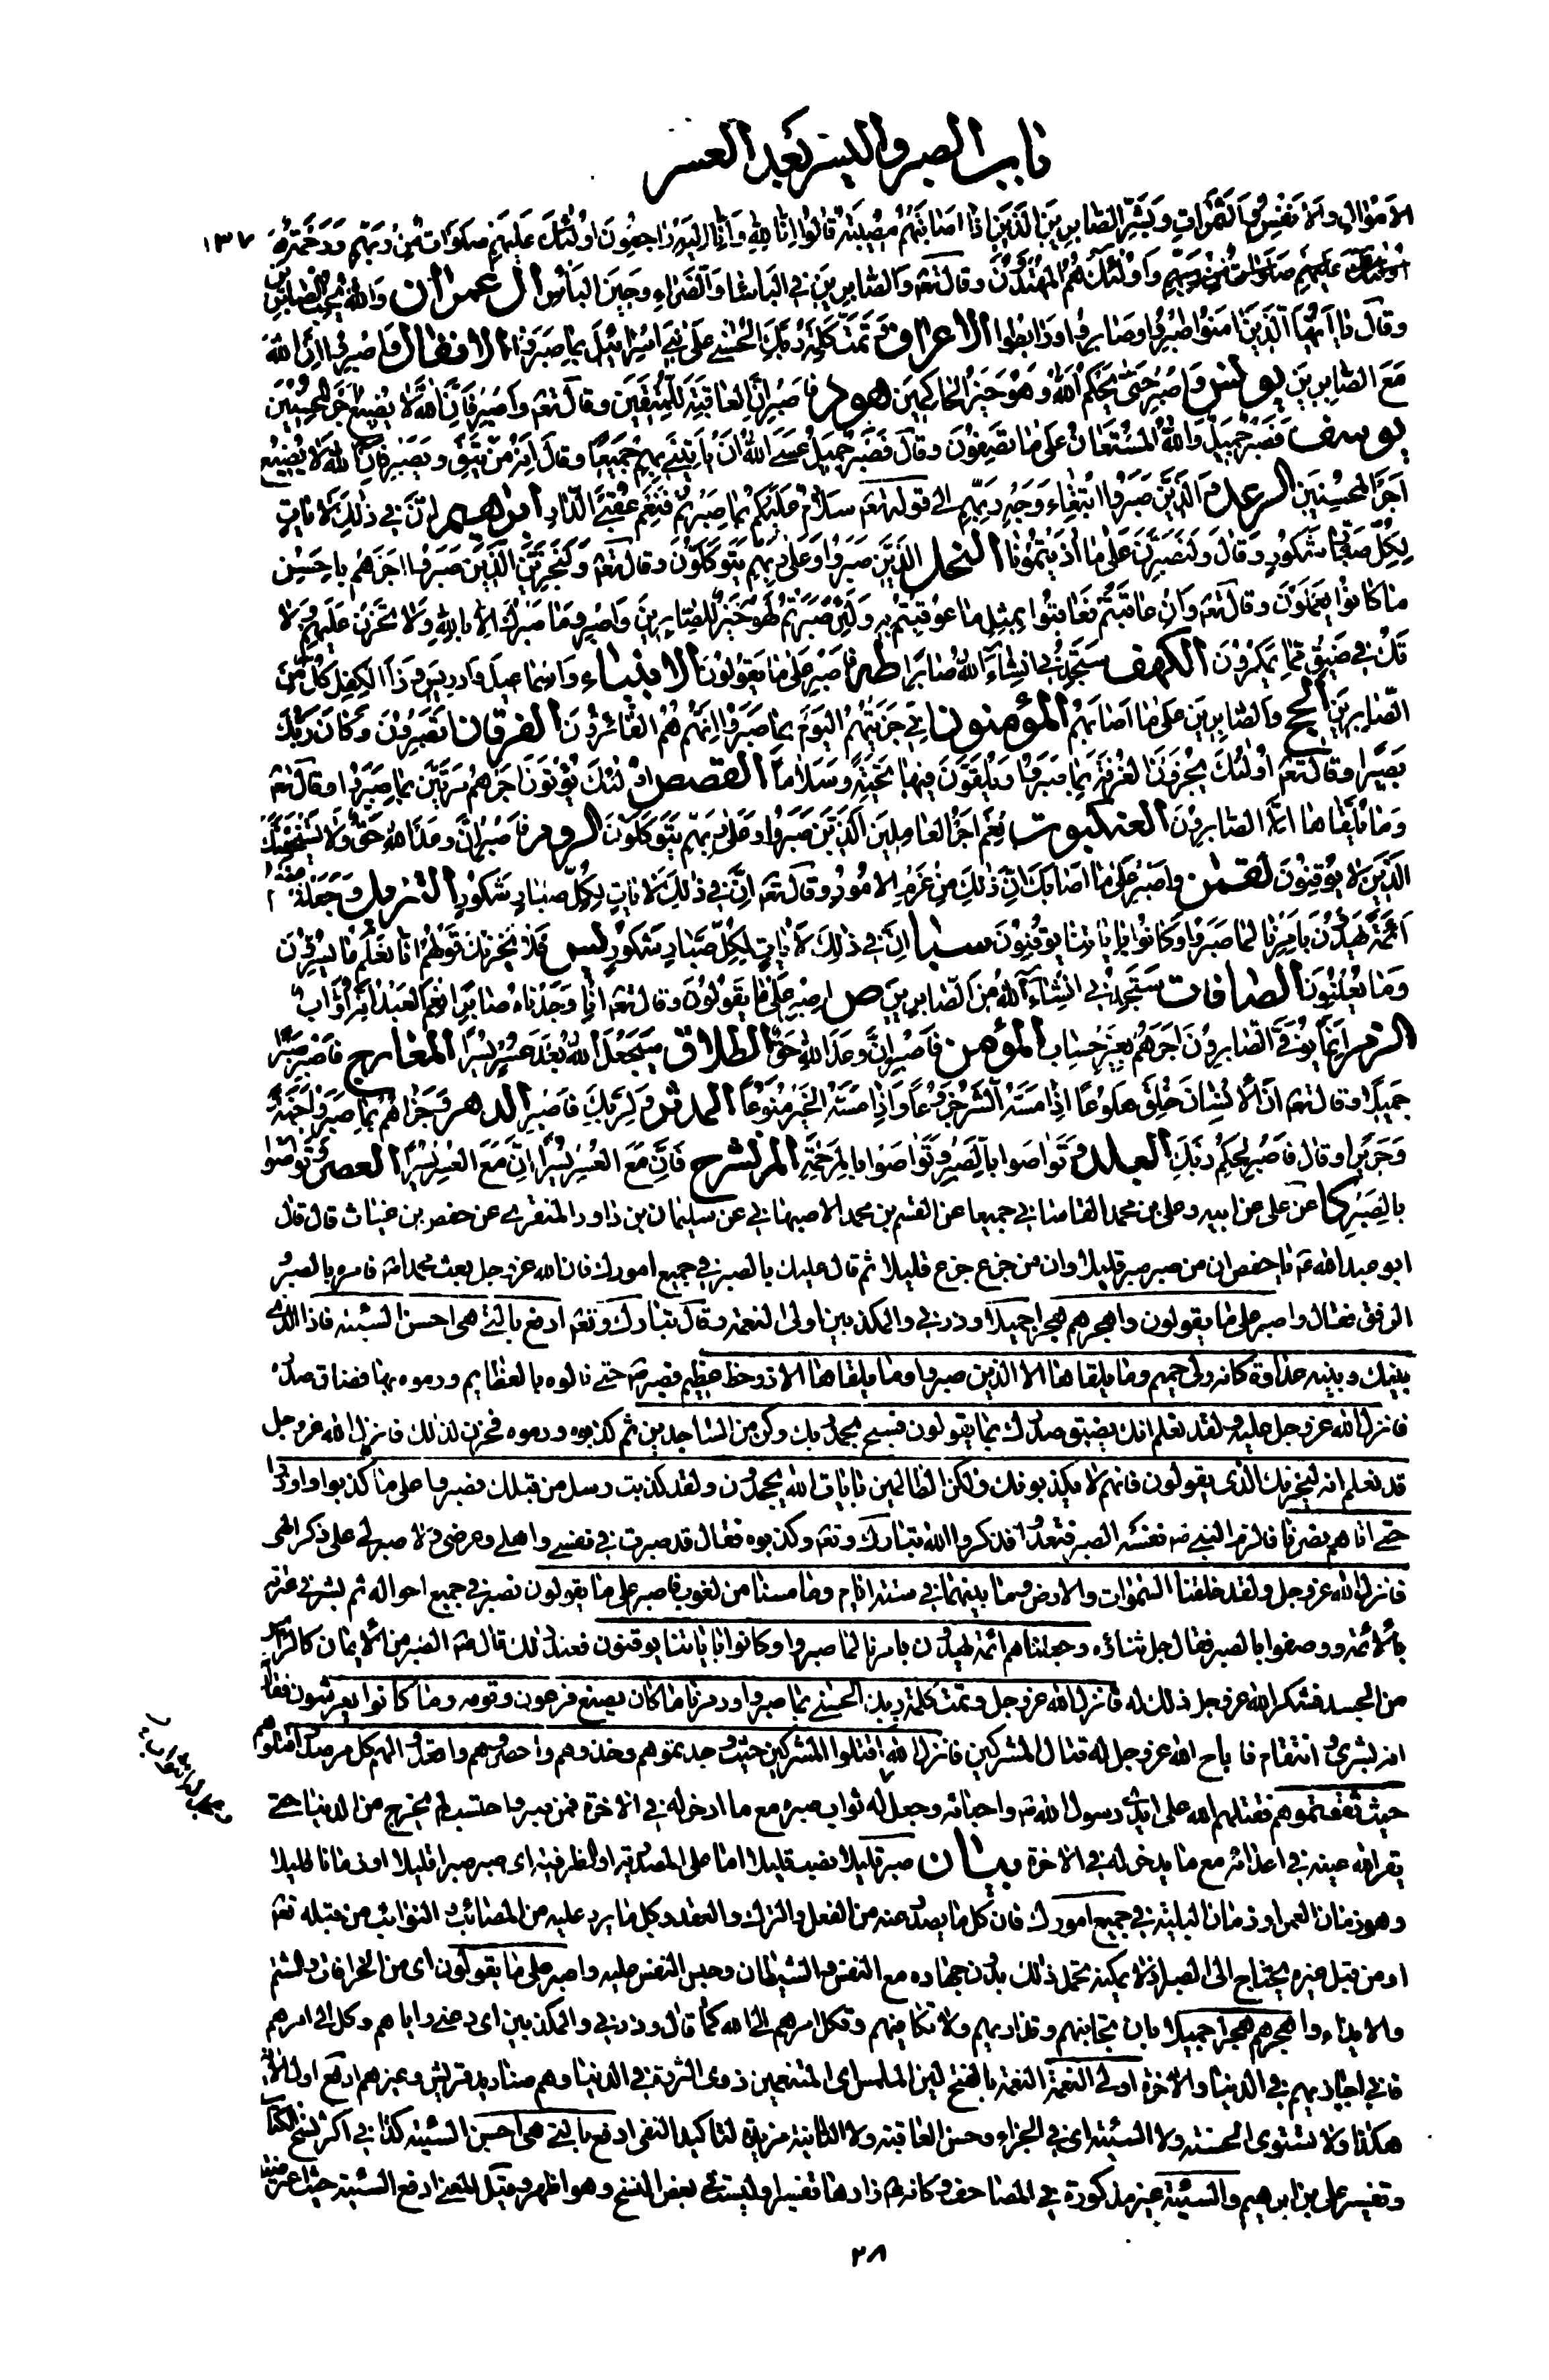 باب الصبر واليسر بعد العسر
١٣٧
الاموال والانفس والثمرات وبشر الصابرين الذين اذا اصابتهم مصيبة قالوا انا لله وانا اليه راجعون اولئك عليهم صلوات من ربهم ورحمة
اولئك عليهم صلوات من ربهم واولئك هم المهتدون وقال تعه والصابرين في الباساء والضراء وحين الباس ال عمران والله يحب الصابرين
وقال يا ايها الذين امنوا اصبروا وصابروا ورابطوا الاعراف وتمت كلمة ربك الحسنى على بني اسرائيل بما صبروا الانفال واصبروا ان الله
مع الصابرين يونس واصبر حتى يحكم الله وهو خير الحاكمين هود فاصبر ان العاقبة للمتقين وقال تعه واصبر فان الله لا يضيع اجر المحسنين
يوسف فصبر جميل والله المستعان على ما تصفون وقال فصبر جميل عسى الله ان ياتيني بهم جميعا وقال انه من يتق ويصبر فان الله لا يضيع
اجر المحسنين الرعد والذين صبروا ابتغاء وجه ربهم الى قوله تعه سلام عليكم بما صبرتم فنعم عقبى الدار ابراهيم ان في ذلك لايات
لكل صبار شكور وقال ولنصبرن على ما اذيتمونا النحل الذين صبروا وعلى ربهم يتوكلون وقال تعه ولنجزين الذين صبروا اجرهم باحسن
ما كانوا يعملون وقال تعه وان عاقبتم فعاقبوا بمثل ما عوقبتم به ولئن صبرتم لهو خير للصابرين واصبر وما صبرك الا بالله ولا تحزن عليهم ولا
تك في ضيق مما يمكرون الكهف ستجدني ان شاء الله صابرا طه فاصبر على ما يقولون الانبياء واسماعيل وادريس وذا الكفل كل من
الصابرين الحج والصابرين على ما اصابهم المؤمنون اني جزيتهم اليوم بما صبروا انهم هم الفائزون الفرقان اتصبرون وكان ربك
بصيرا وقال تعه اولئك يجزون الغرفة بما صبروا ويلقون فيها تحية وسلاما القصص اولئك يؤتون اجرهم مرتين بما صبروا وقال تعه
وما يلقاها الا الصابرون العنكبوت نعم اجر العاملين الذين صبروا وعلى ربهم يتوكلون الروم فاصبر ان وعد الله حق ولا يستخفنك
الذين لا يوقنون لقمن واصبر على ما اصابك ان ذلك من عزم الامور وقال تعه ان في ذلك لايات لكل صبار شكور التنزيل وجعلنا منهم
ائمة يهدون بامرنا لما صبروا وكانوا باياتنا يوقنون سبا ان في ذلك لايات لكل صبار شكور يس فلا يحزنك قولهم انا نعلم ما يسرون
وما يعلنون الصافات ستجدني ان شاء الله من الصابرين ص اصبر على ما يقولون وقال تعه انا وجدناه صابرا نعم العبد انه اواب
الزمر انما يوفى الصابرون اجرهم بغير حساب المؤمن فاصبر ان وعد الله حق الطلاق سيجعل الله بعد عسر يسرا المعارج فاصبر صبرا
جميلا وقال تعه ان الانسان خلق هلوعا اذا مسه الشر جزوعا واذا مسه الخير منوعا المدثر ولربك فاصبر الدهر وجزاهم بما صبروا جنة
وحريرا وقال فاصبر لحكم ربك البلد وتواصوا بالصبر وتواصوا بالمرحمة الم نشرح فان مع العسر يسرا ان مع العسر يسرا العصر وتواصوا
بالصبر كا عن علي عن ابيه وعلي بن محمد القاساني جميعا عن القسم بن محمد الاصبهاني عن سليمان بن داود المنقري عن حفص بن غياث قال قال
ابو عبد الله ع يا حفص ان من صبر صبر قليلا وان من جزع جزع قليلا ثم قال عليك بالصبر في جميع امورك فان الله عز وجل بعث محمدا ص فامره بالصبر و
الرفق فقال واصبر على ما يقولون واهجرهم هجرا جميلا وذرني والمكذبين اولى النعمة وقال تبارك وتعه ادفع بالتي هي احسن السيئة فاذا الذي
بينك وبينه عداوة كانه ولي حميم وما يلقاها الا الذين صبروا وما يلقاها الا ذو حظ عظيم فصبر ص حتى نالوه بالعظايم ورموه بها فضاق صدره
فانزل الله عز وجل عليه ولقد نعلم انك يضيق صدرك بما يقولون فسبح بحمد ربك وكن من الساجدين ثم كذبوه ورموه فحزن لذلك فانزل الله عز وجل
قد نعلم انه ليحزنك الذي يقولون فانهم لا يكذبونك ولكن الظالمين بايات الله يجحدون ولقد كذبت رسل من قبلك فصبروا على ما كذبوا واوذوا
حتى اتاهم نصرنا فالزم النبي ص نفسه الصبر فتعدوا فذكروا الله تبارك وتعه وكذبوه فقال قد صبرت في نفسي واهلي وعرضي ولا صبر لي على ذكر الهي
فانزل الله عز وجل ولقد خلقنا السموات والارض وما بينهما في ستة ايام وما مسنا من لغوب فاصبر على ما يقولون فصبر في جميع احواله ثم بشر في عترته
بالائمة ووصفوا بالصبر فقال جل ثناؤه وجعلناهم ائمة يهدون بامرنا لما صبروا وكانوا باياتنا يوقنون فعند ذلك قال ص الصبر من الايمان كالراس
من الجسد فشكر الله عز وجل ذلك له فانزل الله عز وجل وتمت كلمة ربك الحسنى بما صبروا ودمرنا ما كان يصنع فرعون وقومه وما كانوا يعرشون فقال
انه بشرى وانتقام فاباح الله عز وجل له قتال المشركين فانزل الله اقتلوا المشركين حيث وجدتموهم وخذوهم واحصروهم واقعدوا لهم كل مرصد اقتلوهم
حيث ثقفتموهم فقتلهم الله على ايدي رسول الله ص واحبائه وجعل له ثواب صبره مع ما ادخر له في الاخرة فمن صبر واحتسب لم يخرج من الدنيا حتى
يقر الله عينه في اعدائه مع ما يدخر له في الاخرة بيان صبر قليلا نصب قليلا اما على المصدرية او الظرفية اي صبر صبرا قليلا او زمانا قليلا
وهو زمان العمر او زمان البلية في جميع امورك فان كل ما يصدر عنه من الفعل والترك والعقد وكل ما يرد عليه من المصائب والنوائب من قبله تعه
او من قبل غيره يحتاج الى الصبر اذ لا يمكنه تحمل ذلك بدون جهاده مع النفس والشيطان وحبس النفس عليه واصبر على ما يقولون اي من الخرافات والشتم
والايذاء واهجرهم هجرا جميلا بان تجانبهم وتداريهم ولا تكافيهم وتكل امرهم الى الله كما قال وذرني والمكذبين اي دعني واياهم وكل الي امرهم
فاني اجازيهم في الدنيا والاخرة اولى النعمة النعمة بالفتح لين الملمس اي المتنعمين ذوى الثروة في الدنيا وهم صناديد قريش وغيرهم ادفع اول الاية
هكذا ولا تستوى الحسنة ولا السيئة اي في الجزاء وحسن العاقبة ولا الثانية مزيدة لتاكيد النفى ادفع بالتي هي احسن السيئة كذا في اكثر نسخ الكتاب
وتفسير علي بن ابرهيم والسيئة غير مذكورة في المصاحف وكانه ع زادها تفسيرا وليست في بعض النسخ وهو اظهر وقيل المعنى ادفع السيئة حيث اعترضتك
٢٨